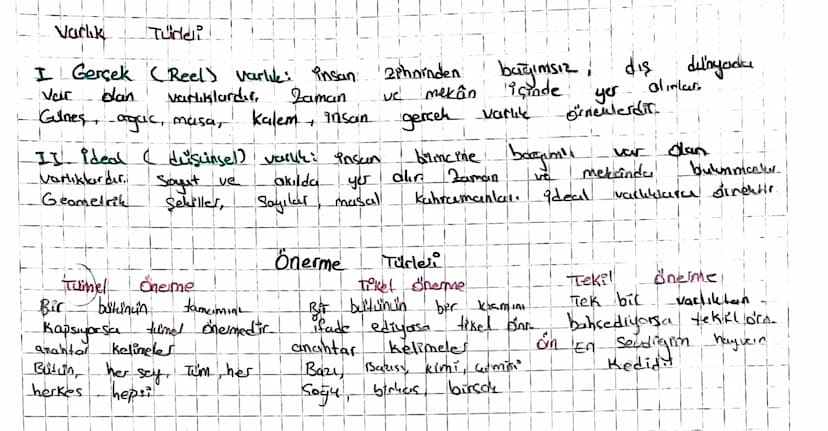 Varlık Türleri
I Gerçek (Reel) varlık: insan zihninden bağımsız, dış dünyada
var olan varlıklardır, Zaman ve mekân içinde yer alırlar.
Güneş, ağaç, masa, kalem, insan gerçek varlık örneklerdir.
II İdeal (düşünsel) varlık: insan bilincine bağımlı var olan
varlıklardır. Soyut ve akılda yer alır zaman ve mekânda bulunmazlar.
Geometrik şekiller, sayılar, masal kahramanları. ideal varlıklara örnektir
Önerme Türleri
Tümel önerme
Bir bütünün tamamını
kapsıyorsa tümel önermedir
anahtar kelimeler
Bütün, her şey, Tüm, her
herkes hepsi
Tikel önerme
Bir bütünün bir kısmını
ifade ediyosa tikel önr.
anahtar kelimeler
Bazı, Bazısı, kimi,
Çoğu, birkaç, birçok
Tekil önerme
Tek bir varlıktan
bahsediyorsa tekil örn.
ön En sevdiğim hayvan
kedidir